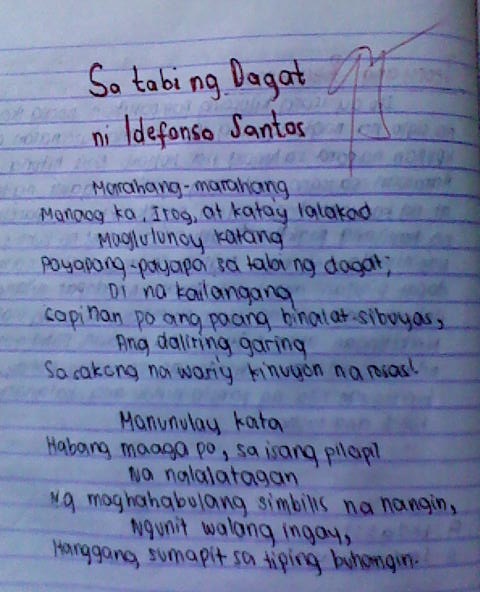 Sa tabi ng Dagat
ni Ildefonso Santos
Marahang-marahang
Manaog ka, Irog, at kata'y lalakad
Maglulunoy katang
Payapang-payapa sa tabi ng dagat;
Di na kailangang
Sapinan pa ang paang binalat-sibuyas,
Ang daliring garing
Sa sakong na wari'y kinuyom na rosas!
Manunulay kata
Habang maaga pa, sa isang pilapil
Na nalalatagan
Ng maghahabulang simbilis na hangin,
Ngunit walang ingay,
Hanggang sumapit sa tiping buhangin.